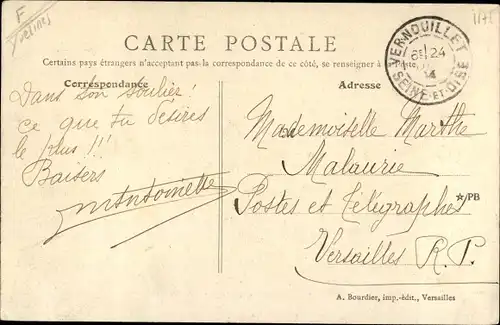 F
Yvelines
1178
CARTE POSTALE
Certains pays étrangers n'acceptant pas la correspondance de ce côté, se renseigner à la Poste.
VERNOUILLET
6E 24
14
SEINE-ET-OISE
Correspondance
Dans ton soulier !
ce que tu désires
le plus !!!
Baisers
MAntoinette
Adresse
Mademoiselle Marthe
Malaurie
Postes et Télégraphes
Versailles R.P.
*/PB
A. Bourdier, imp.-édit., Versailles